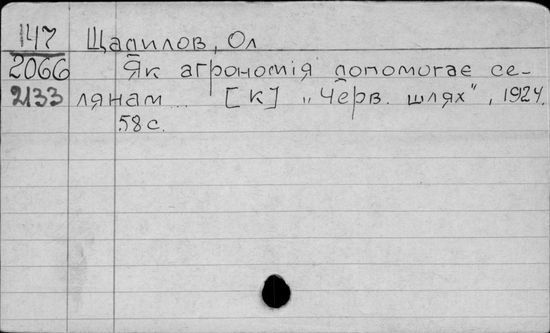 147 Щапилов, Ол
2066 Як агрономія допомогає се-
2133 лянам... [К] „Черв. шлях", 1924.
58 с.